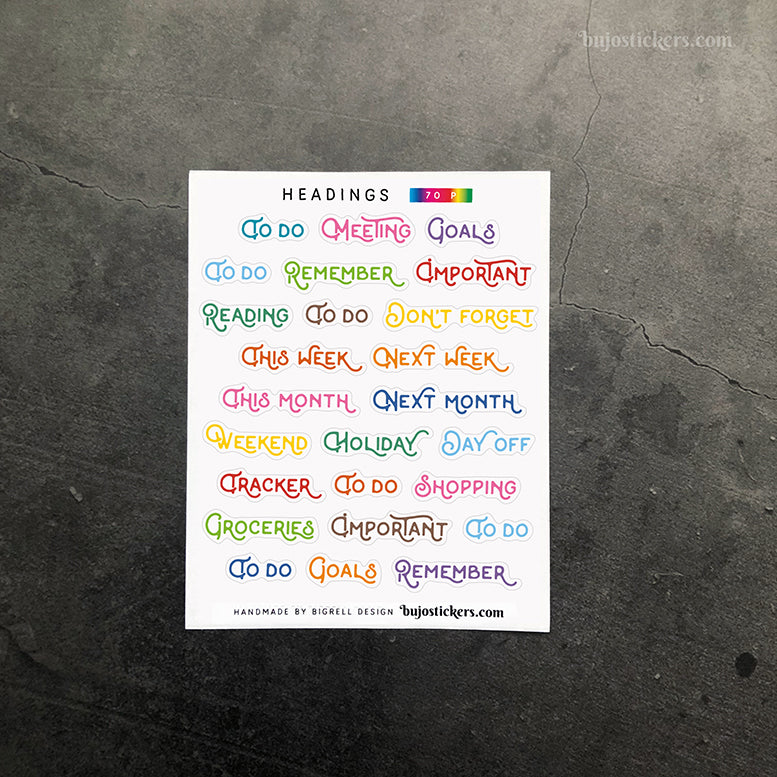 bujostickers.com
HEADINGS 70 P
To do Meeting Goals
To do Remember Important
Reading To do Don't forget
This week Next week
This month Next month
Weekend Holiday Day off
Tracker To do Shopping
Groceries Important To do
To do Goals Remember
HANDMADE BY BIGRELL DESIGN bujostickers.com